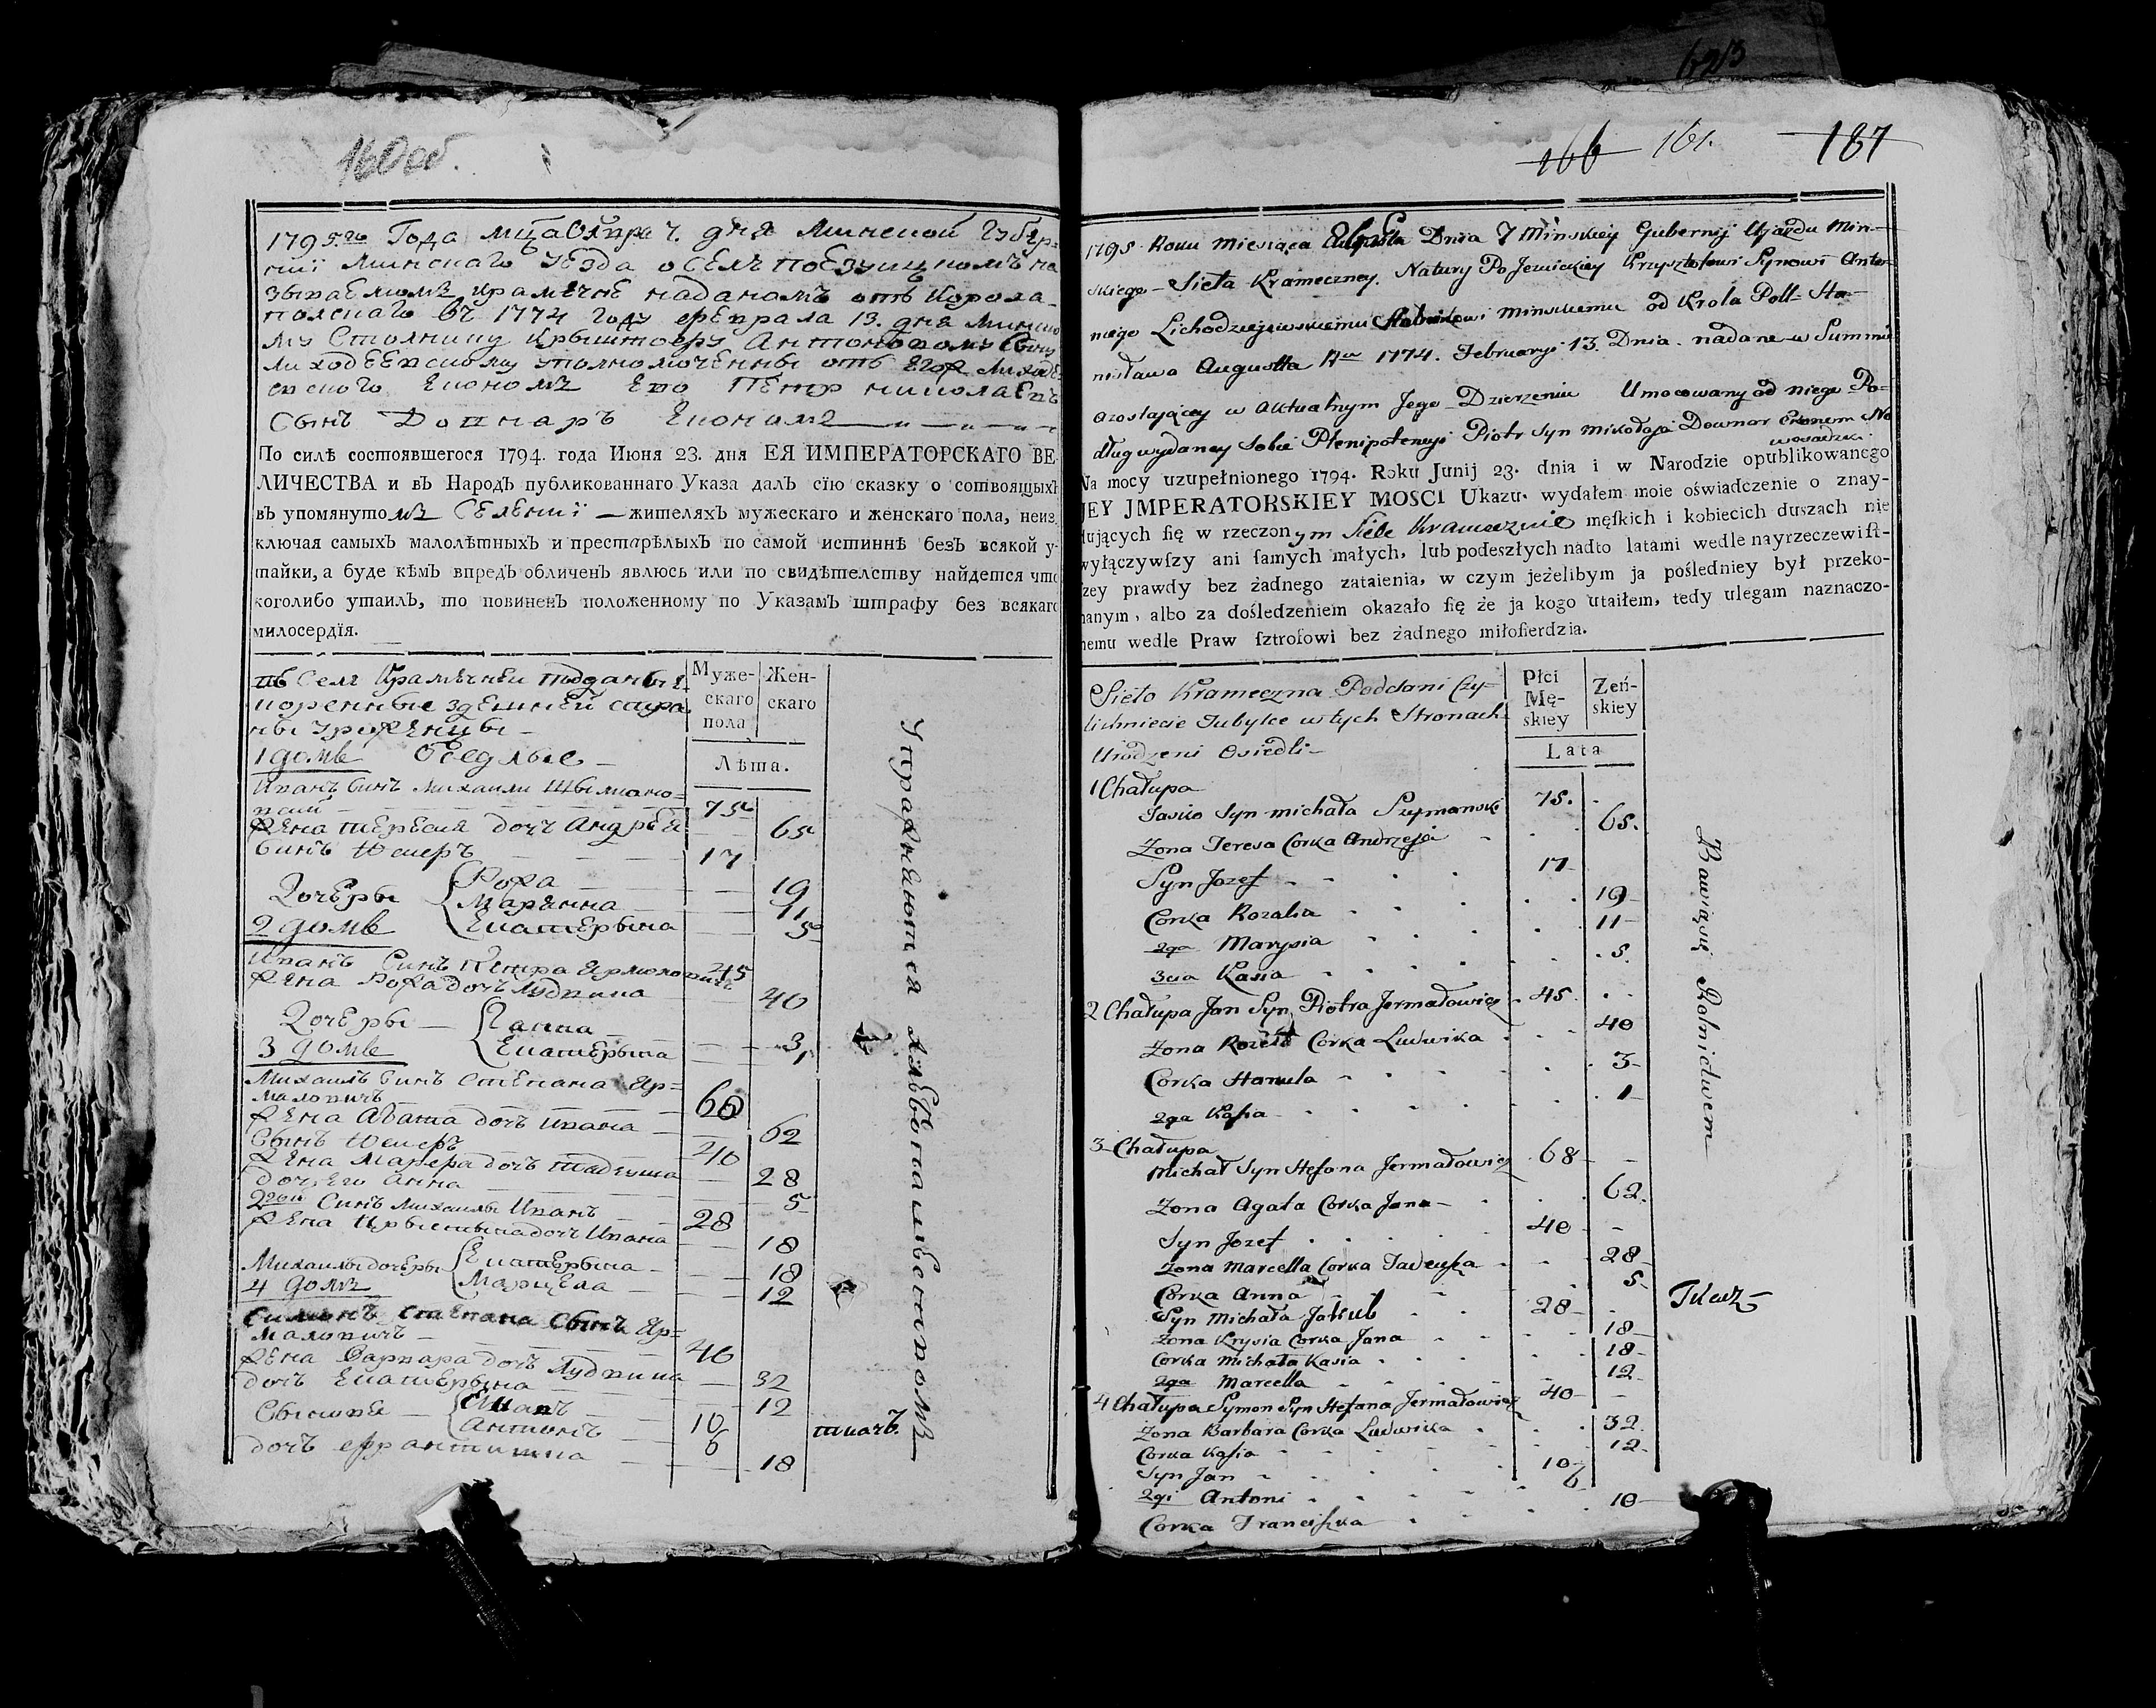 160 об.
1795.го Года мца Августа 7. дня Минской Губер=
нии Минскаго уезда о селе поезуицкомъ на
зываемомъ Крамечне наданомъ отъ Короля
полскаго въ 1774 году февраля 13. дня Минско
му Столнику Крыштофу Антоновому Сыну
Лиходеевскому уполномоченны отъ Его Лиходе-
евского Економъ Его Петр николаевъ
Сынъ Довнаръ Економъ
По силѣ состоявшегося 1794. года Июня 23. дня ЕЯ ИМПЕРАТОРСКАГО ВЕ-
ЛИЧЕСТВА и въ Народъ публикованнаго Указа далъ сїю сказку о сотвоящыхъ
въ упомянутомъ Селении жителяхъ мужескаго и женскаго пола, неиз
ключая самыхъ малолѣтныхъ и престарѣлыхъ по самой истиннѣ безъ всякой у-
тайки, а буде кѣмъ впредъ обличенъ явлюсь или по свидѣтелству найдется что
коголибо утаилъ, то повиненъ положенному по Указамъ штрафу без всякаго
милосердїя.
въ Селе Крамечней Подданые
коренные здешней сторо
ны уроженцы
Муже-
скаго
пола
Жен-
скаго
Лѣта.
1 домъ Оседлые
Иванъ Синъ Михаили Шымано=
вский 75
Жена Тереся дочъ Андрея 65
Синъ Юзефъ 17
Дочеры Рожа 19
Марянна 11
Екатерына 5
2 домъ
Иванъ Синъ Петра Ярмолович 45
Жена Рожа дочъ Лудвика 40
Дочеры Ганна 3
Екатерына 1
3 домъ
Михаилъ Синъ Степана Яр=
моловичъ 68
Жена Агата дочъ Ивана 62
Сынъ Юзефъ 40
Жена Марцела дочъ Тадеуша 28
Дочъ Его Анна 5
2гой Синъ Михаилы Иванъ 28
Жена Крысtына дочъ Ивана 18
Михаилы дочеры Екатерына 18
Марцела 12
4 домъ
Симонъ Степана Сынъ Яр=
моловичъ 40
Жена Варвара дочъ Лудвика 32
дочъ Екатерына 12
Сыновя Иванъ 10
Антонъ 6
ткачъ.
дочъ Франтишка 18
Упражняются хлебопашествомъ
623
166 161. 187
1795 Roku Miesiąca Augusta Dnia 7 Minskiey Gubernij Ujazdu Min-
skiego Sieła Krameczney. Natury Po Jezuickiey Krzysztofowi Synowi Anto-
niego Lichodziejewskiemu Stolnikowi Minskiemu od Krola Poll: Sta-
nisława Augusta Ru 1774. February 13. Dnia nadane w Summie
Zostaiącey w aktualnym Jego Dzierzeniu Umocowany od niego Po-
dług wydaney Sobie Plenipotencyi Piotr Syn Mikołaja Downar Ekonom
Na mocy uzupełnionego 1794. Roku Junij 23. dnia i w Narodzie opublikowanego
JEY JMPERATORSKIEY MOSCI Ukazu. wydałem moie oświadczenie o znay-
dujących ſię w rzeczonym Siele Kramecznie męſkich i kobiecich duszach nie
wyłączywſzy ani ſamych małych, lub podeszłych nadto latami wedle nayrzeczewiſt-
ſzey prawdy bez żadnego zataienia, w czym jeżelibym ja poſledniey był przeko-
nanym, albo za doſledzeniem okazało ſię że ja kogo utaiłem, tedy ulegam naznaczo-
nemu wedle Praw ſztrofowi bez żadnego miłoſierdzia.
Sieło Krameczna Poddani Czy-
li Kmiecie Tubylce w tych Stronach
Urodzeni Osiedli
Płci
Mę-
skiey
Zeń-
skiey
Lata
1 Chałupa
Jasko Syn Michała Szymanski 75.
Zona Teresa Corka Andrzeja 65.
Syn Jozef 17
Corka Rozalia 19
2ga Marysia 11
3cia Kasia 5.
2 Chałupa Jan Syn Piotra Jermałowicz 45.
Zona Corka Ludwika 40
Corka Hanula 3
2ga Kasia 1
3 Chałupa
Michał Syn Stefana Jermałowicz 68
Zona Agata Corka Jana 62.
Syn Jozef 40
Zona Marcella Corka Tadeusza 28
Corka Anna 5
Syn Michała Jakub 28
Zona Krysia Corka Jana 18
Corka Michała Kasia 18
2ga Marcella 12
4 Chałupa Symon Syn Stefana Jermałowicz 40
Zona Barbara Corka Ludwika 32
Corka Kasia 12
Syn Jan 10
2gi Antoni 6
Corka Franciszka 18
Bawią się Rolnictwem
Tkacz